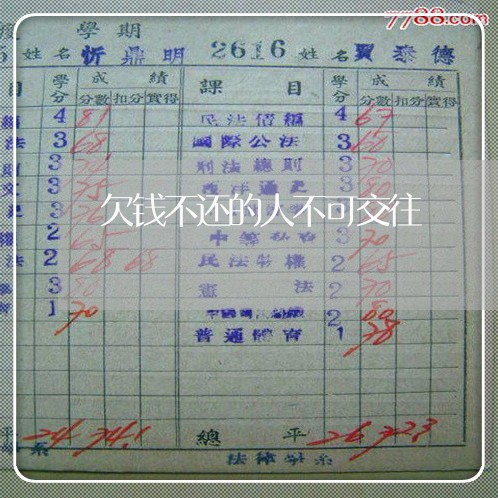 7788.com
學期
姓名 忻鼎明 2616 姓名 賈泰德
目 學分 成績 課目 學分 成績
分數 扣分 實得 分數 扣分 實得
4 81 民法債編 4 67
法 3 68 國際公法 3 60
則 3 刑法總則 3 70
3 75 西洋通史 3
3 3
欠钱不还的人不可交往
權 2 65 中等 3 70
法 2 68 68 民法物權 2 65
3 80 憲法 2 70
育 1 70 2 80
普通體育 1 78
平 24 74.1 總平 26 72.3
系 法律學系